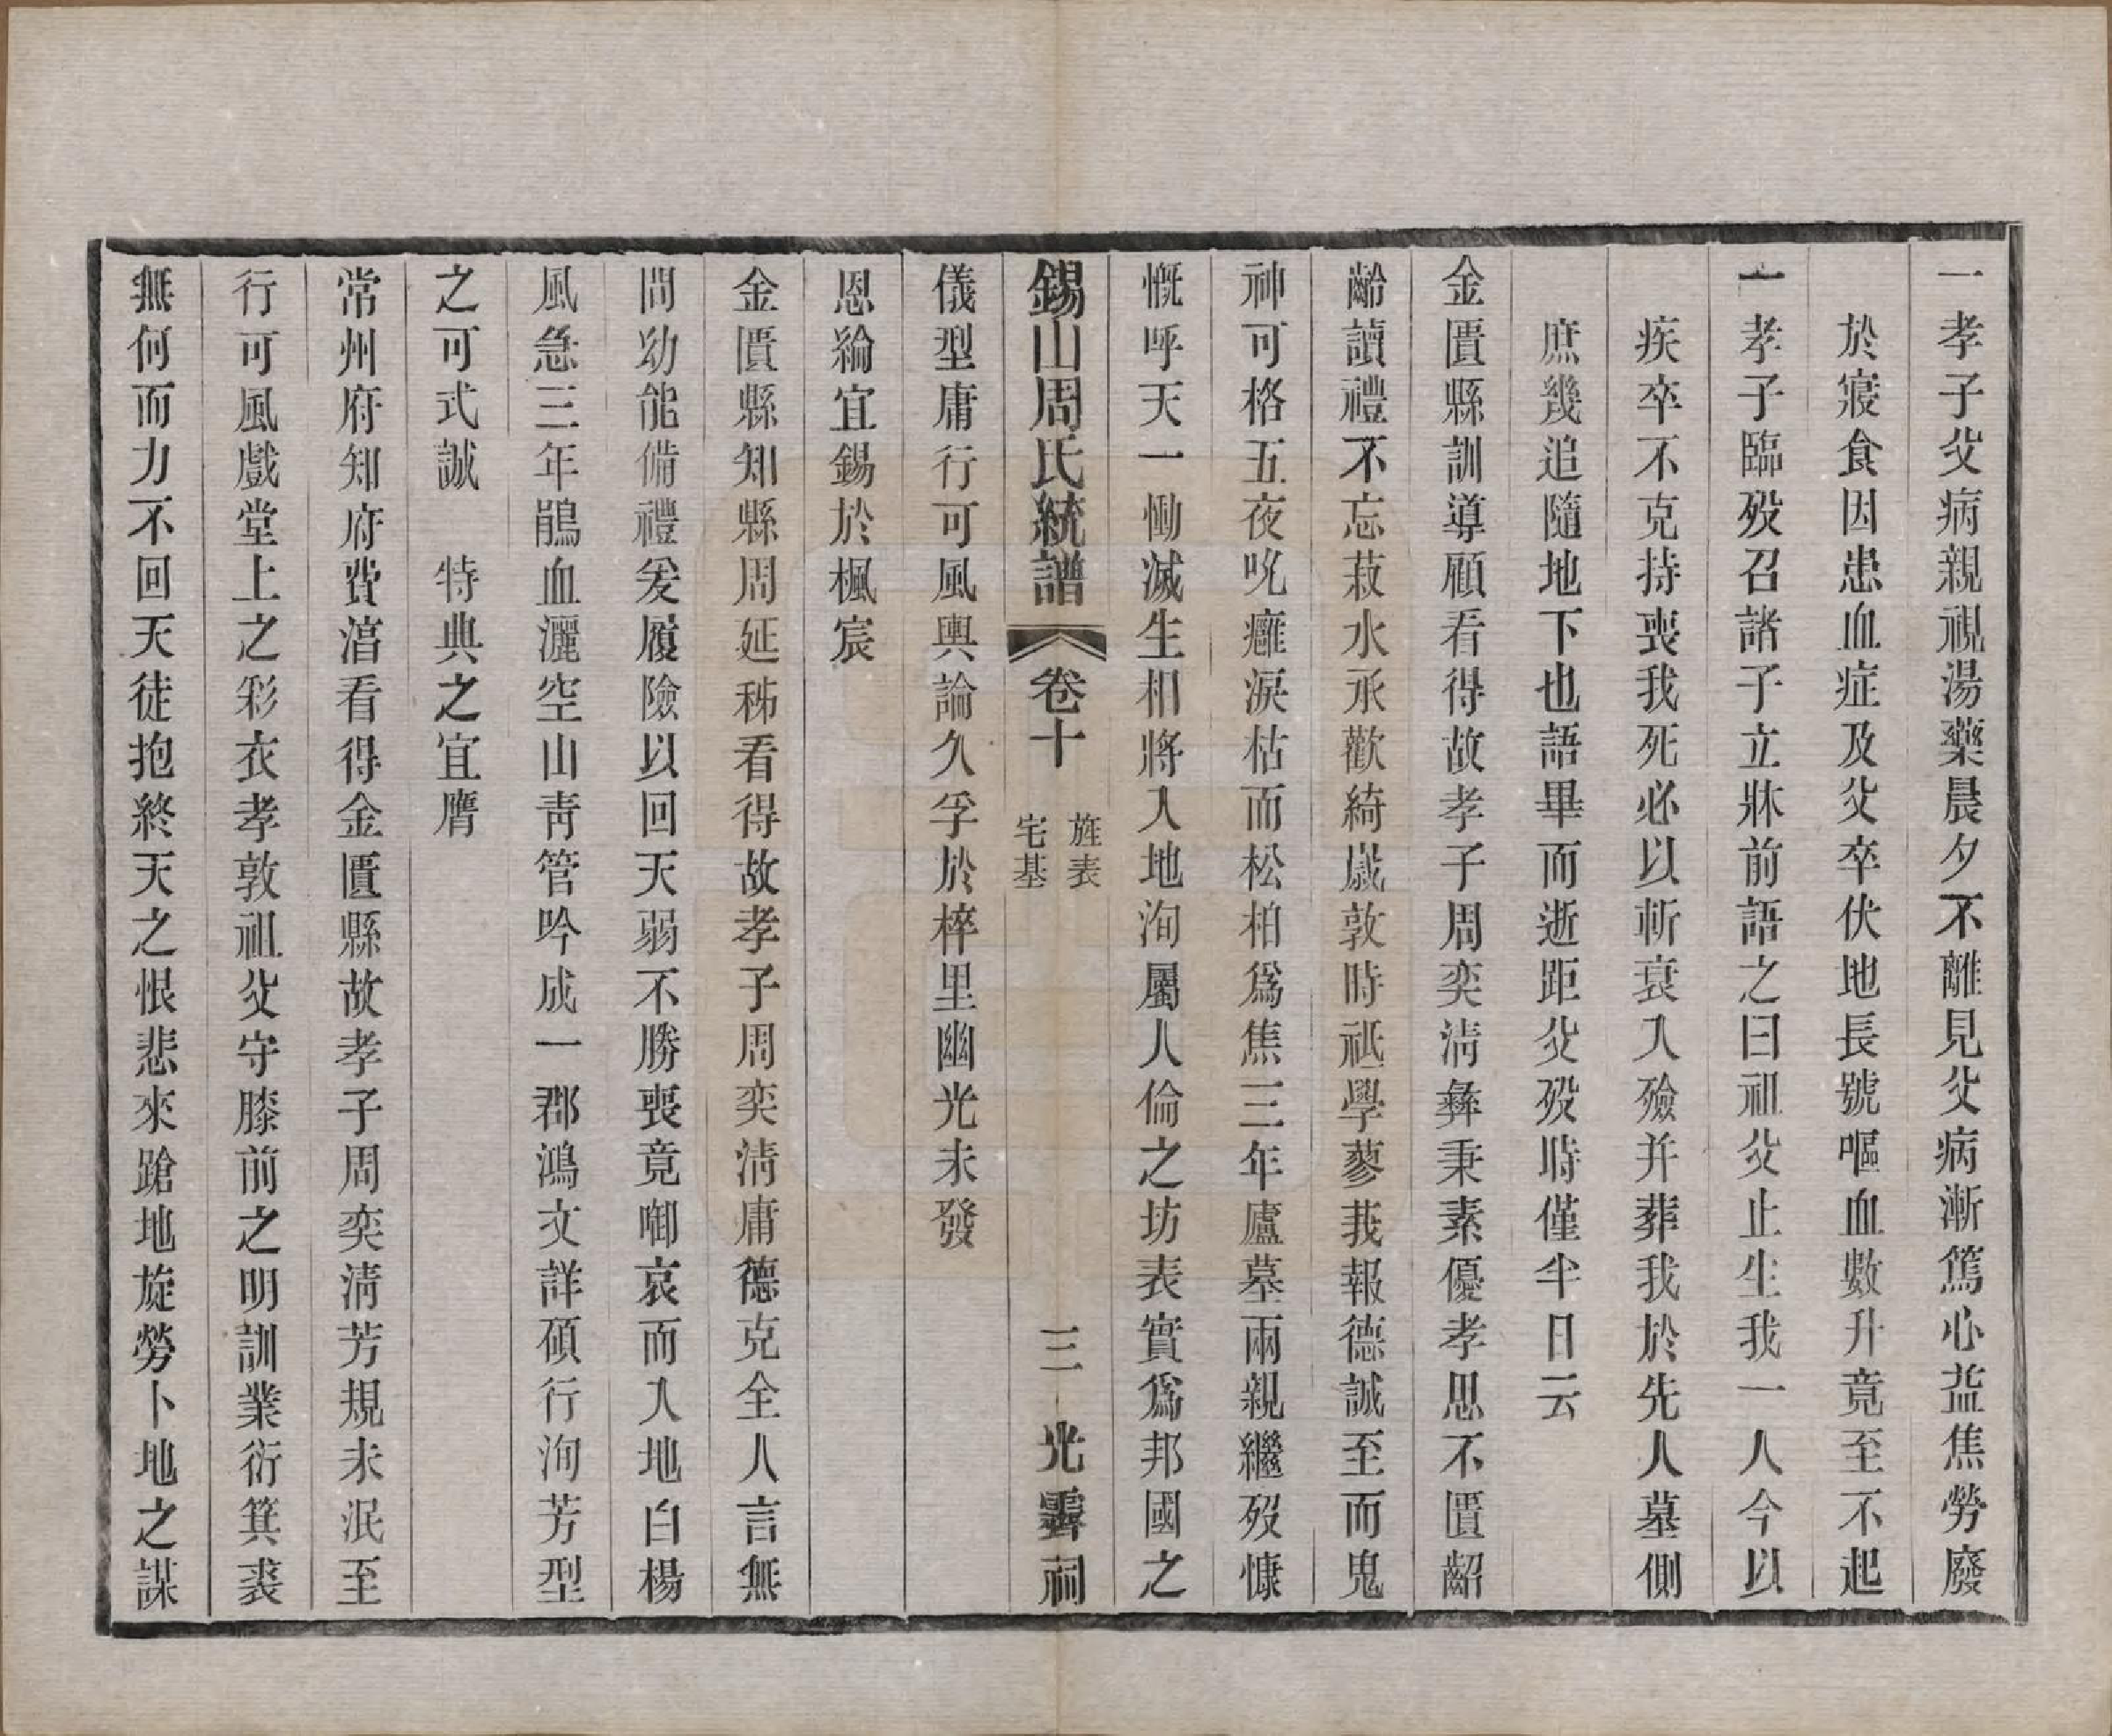 一孝子父病親視湯藥晨夕不離見父病漸篤心益焦勞廢
於寢食因患血症及父卒伏地長號嘔血數升竟至不起
一孝子臨歿召諸子立牀前語之曰祖父止生我一人今以
疾卒不克持喪我死必以斬衰入殮并葬我於先人墓側
庶幾追隨地下也語畢而逝距父歿時僅半日云
金匱縣訓導顧看得故孝子周奕淸彝秉素優孝思不匱齠
齡讀禮不忘菽水承歡綺歲敦時祗學蓼莪報德誠至而鬼
神可格五夜吮癰淚枯而松柏爲焦三年廬墓兩親繼歿慷
慨呼天一慟滅生相將入地洵屬人倫之坊表實爲邦國之
錫山周氏統譜 卷十 旌表 宅基 三 光霽祠
儀型庸行可風輿論久孚於梓里幽光未發
恩綸宜錫於楓宸
金匱縣知縣周延秭看得故孝子周奕淸庸德克全人言無
間幼能備禮爰履險以回天弱不勝喪竟啣哀而入地白楊
風急三年鵑血灑空山靑管吟成一郡鴻文詳碩行洵芳型
之可式誠 特典之宜膺
常州府知府費濇看得金匱縣故孝子周奕淸芳規未泯至
行可風戲堂上之彩衣孝敦祖父守膝前之明訓業衍箕裘
無何而力不回天徒抱終天之恨悲來蹌地旋勞卜地之謀